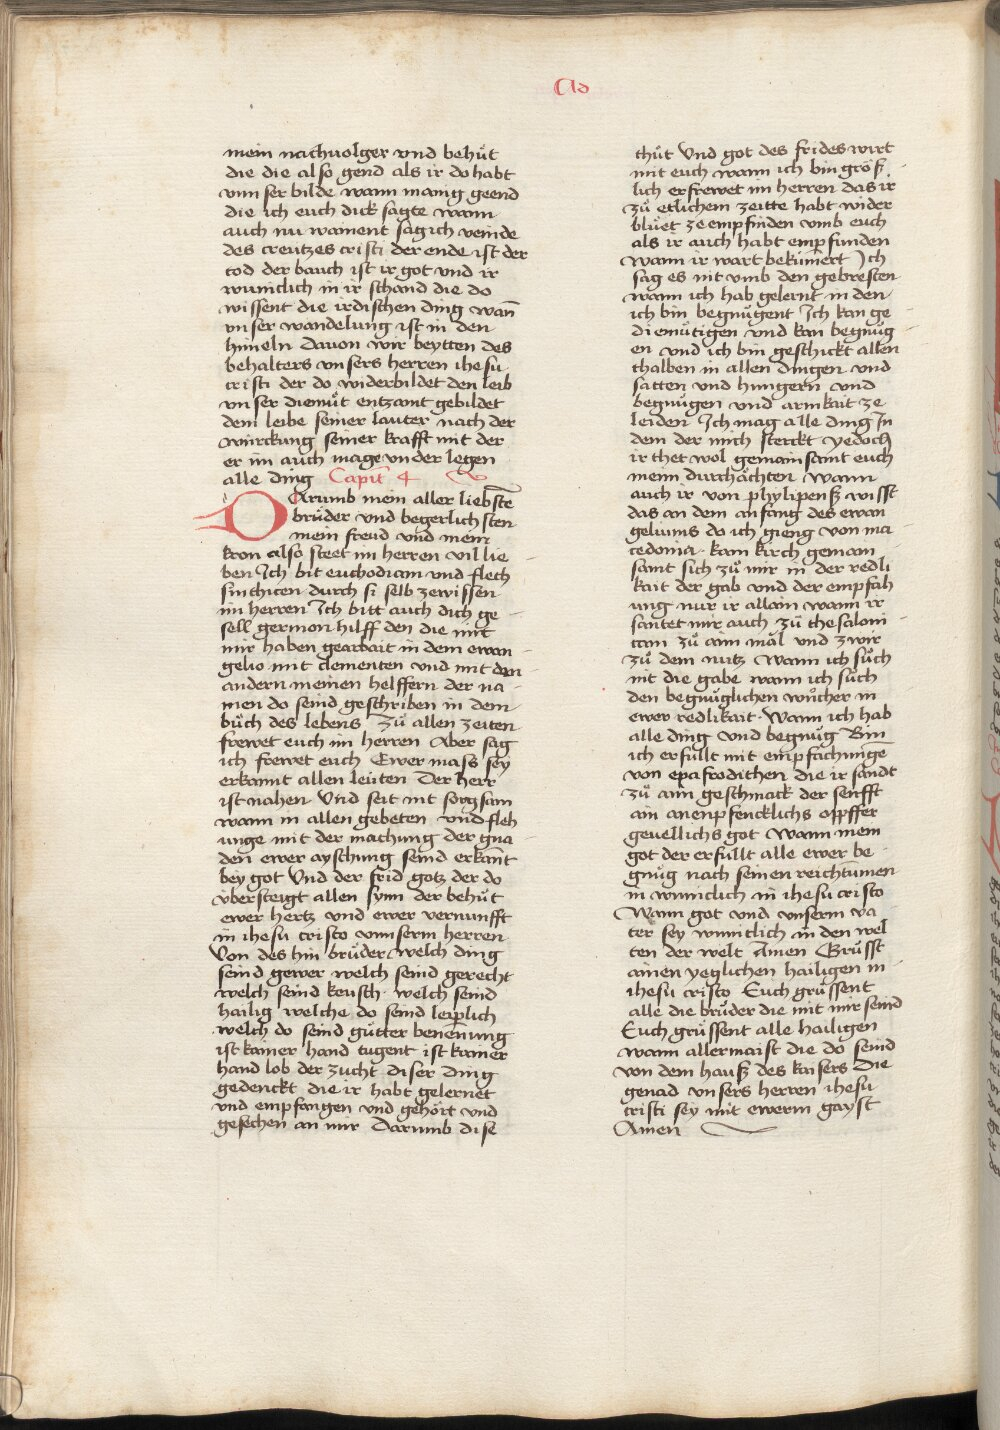 Ad
mein nachuolger vnd behüt
die die also gend als ir do habt
vnnser bilde wann manig geend
die ich euch dick sagte wann
auch nu wanent sag ich veinde
des creutzes cristi der ende ist der
tod der bauch ist ir got vnd ir
wunnclich in ir schand die do
wissent die irdischen ding wann̄
vnser wandelung ist in den
himeln dauon wir beytten des
behalters vnsers herren ihesu
cristi der do widerbildet den leib
vnser diemüt entzamt gebildet
dem leibe seiner lauter nach der
würckung seiner krafft mit der
er im auch mage vnder legen
alle ding Capitł 4
Darumb mein aller liebstē
brüder vnd begerlichsten
mein freud vnd mein
kron also steet im herren vil lie
ben Ich bit euchodiam vnd flech
sinthicen durch si selb zewissen
im herren Ich bitt auch dich ge
sell germon hilff den die mit
mir haben gearbait in dem ewan
gelio mit clementen vnd mit den
andern meinen helffern der na
men do seind geschriben in dem
büch des lebens Zü allen zeiten
frewet euch im herren Aber sag
ich frewet euch Ewer mass sey
erkannt allen leüten Der herr
ist nahen Vnd seit nit sorgsam
wann in allen gebeten vnd fleh
unge mit der machung der gna
den ewer ayschung seind erkant
bey got Vnd der frid gotz der do
vbersteigt allen synn der behüt
ewer hertz vnd ewer vernunfft
in ihesu cristo vnnserm herren
Von des hin brüder welch ding
seind gewer welch seind gerecht
welch seind keusch welch seind
hailig welche do seind leiplich
welch do seind gütter benennung
ist kainer hand tugent ist kainer
hand lob der zucht diser ding
gedenckt die ir habt gelernet
vnd empfangen vnd gehört vnd
gesechen an mir Darumb dise
thüt Vnd got des frides wirt
mit euch wann ich bin größ
lich erfrewet im herren das ir
zü etlichem zeitte habt wider
blüet ze empfinden vmb euch
als ir auch habt empfunden
wann ir wart bekümert Ich
sag es nit vmb den gebresten
wann ich hab gelernt in den
ich bin begnügent Ich kan ge
diemütigen vnd kan begnüg
en vnd ich bin geschickt allen
thalben in allen dingen vnd
satten vnd hungern vnd
begnügen vnd armkait ze
leiden Ich mag alle ding In
dem der mich sterckt yedoch
ir thet wol gemainsamt euch
meim durchächten wann
auch ir von phylipenß wisst
das an dem anfang des ewan
geliums do ich gieng von ma
cedonia kam kirch gemain
samt sich zü mir in der redli
kait der gab vnd der empfah
ung nur ir allain wann ir
santet mir auch zü thesaloni
cam zü aim mäl vnd zwir
zü dem nutz Wann ich süch
nit die gabe wann ich süch
den begnüglichen wücher in
ewer redlikait Wann ich hab
alle ding vnd begnüg Bin
ich erfüllt mit empfachungē
von epafrodithen die ir sandt
zü aim geschmack der senfft
ain anenpfencklichs opffer
geuellichs got Wann mein
got der erfüllt alle ewer be
gnüg nach seinen reichtumen
in wunnclich in ihesu cristo
Wann got vnd vnserm va
ter sey wunnclich in den wel
ten der welt Amen Grüsst
ainen yeglichen hailigen in
ihesu cristo Euch grüssent
alle die brüder die mit mir seind
Euch grüssent alle hailigen
wann allermaist die do seind
von dem hauß des kaisers Die
genad vnsers herren ihesu
cristi sey mit ewerm gayst
Amen